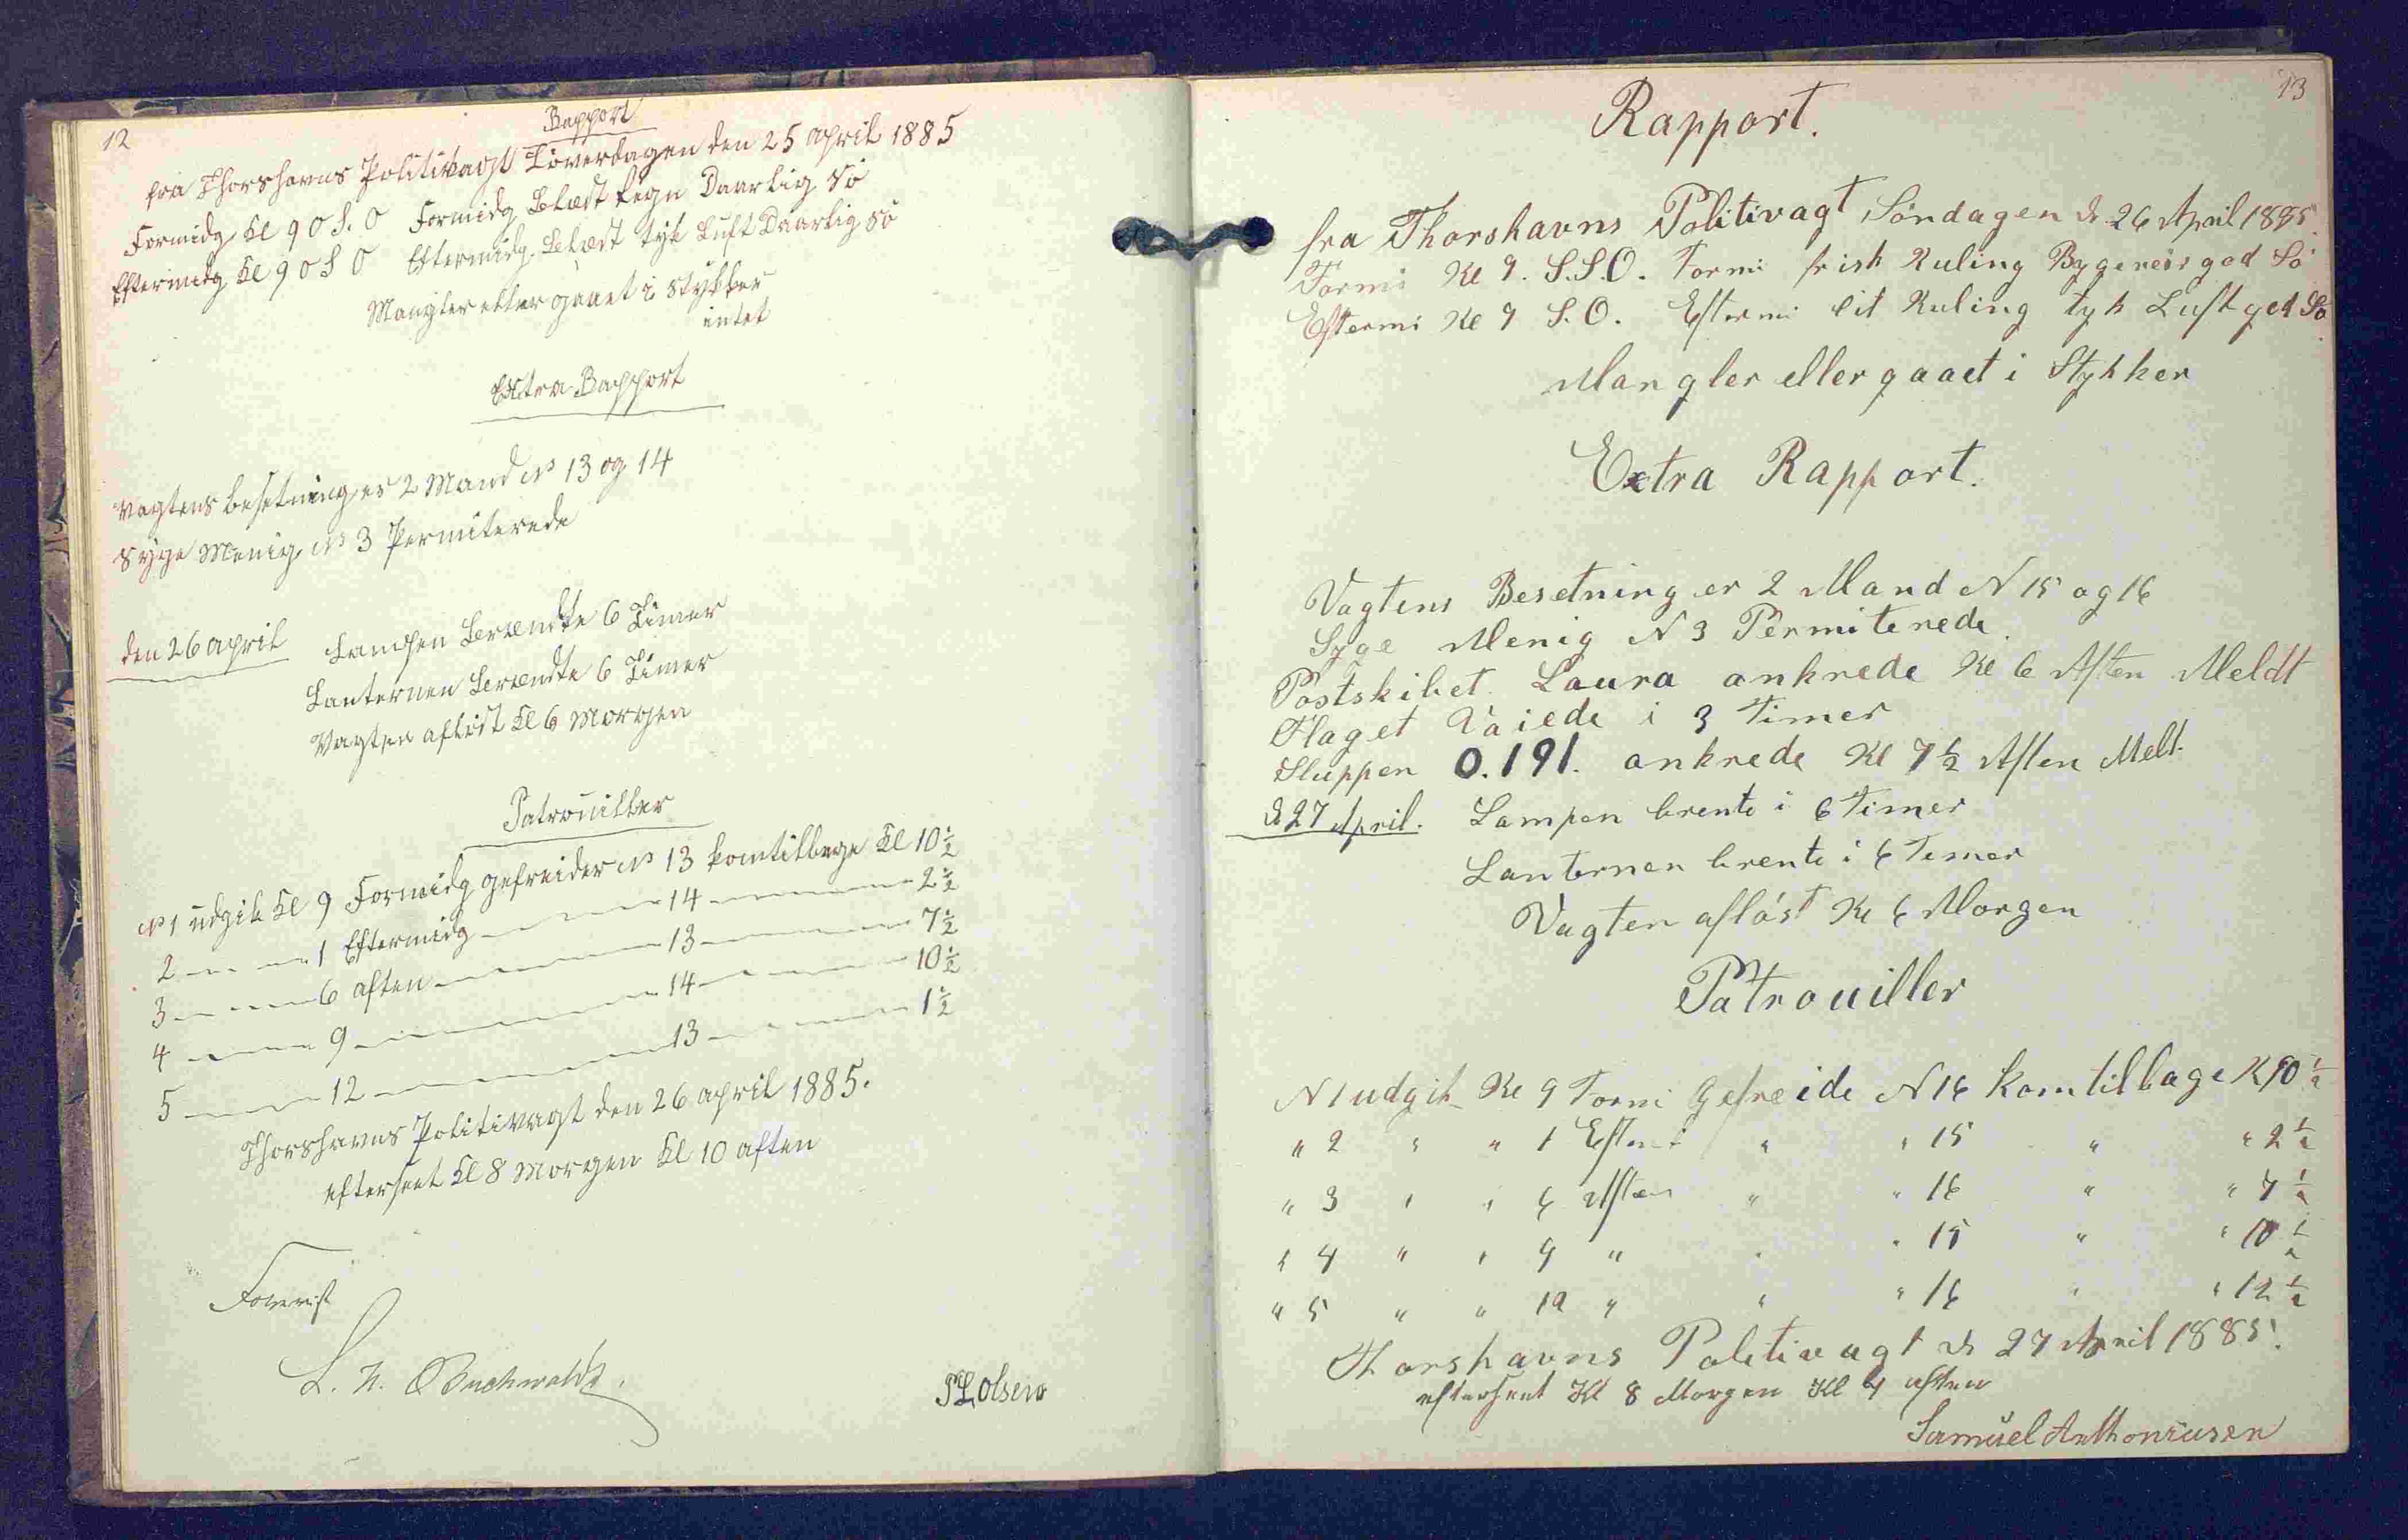 12
Rapport
fra Thorshavns Politivagt Löverdagen den 25 april 1885
Formidg Kl 9 O S. O Formidg Blæst regn Daarlig Sö
Eftermidg Kl 9 O S O Eftermidg Blæst tyk Luft Daarlig Sö
Mangler eller gaaet i Stykker
intet
Extra Rapport
Vagtens besetning er 2 Mand No 13 og 14
Syge Menig No 3 Permiterede
den 26 april Lampen Brændte 6 Timer
Lanternen Brændte 6 Timer
Vagten aflöst Kl 6 Morgen
Patrouiller
No 1 udgik Kl 9 Formidg gefreider No 13 komtilbage Kl 10½
2 — — 1 Eftermidg — 14 — 2½
3 — — 6 aften — 13 — 7½
4 — — 9 — 14 — 10½
5 — — 12 — 13 — 1½
Thorshavns Politivagt den 26 april 1885.
efterseet Kl 8 Morgen Kl 10 aften
Forevist
L. H. O Buchwaldt.
P L Olsen
13
Rapport.
fra Thorshavns Politivagt Söndagen d. 26 April 1885.
Formi Kl 9. S.S.O. Formi frisk Kuling Bygeveir god Sö
Eftermi Kl 9 S.O. Eftermi lit Kuling tyk Luft god Sö
Mangler eller gaaet i Stykker
Extra Rapport.
Vagtens Besetning er 2 Mand N 15 og 16
Syge Menig N 3 Permiterede.
Postskibet Laura ankrede Kl 6 Aften Meldt
Flaget Vaiede i 3 Timer
Sluppen O.191. ankrede Kl 7½ Aften Melt.
d. 27 April. Lampen brente i 6 Timer
Lanternen brente i 6 Timer
Vagten aflöst Kl 6 Morgen
Patrouiller
N 1 udgik Kl 9 Formi Gefreide N 16 komtilbage Kl 10½
" 2 " " 1 Eftmi " " 15 " " 2½
" 3 " " 6 Aften " " 16 " " 7½
" 4 " " 9 " " " 15 " " 10½
" 5 " " 12 " " " 16 " " 12½
Thorshavns Politivagt d. 27 April 1885.
efterseet Kl 8 Morgen Kl 4 aften
Samuel Anthoniusen